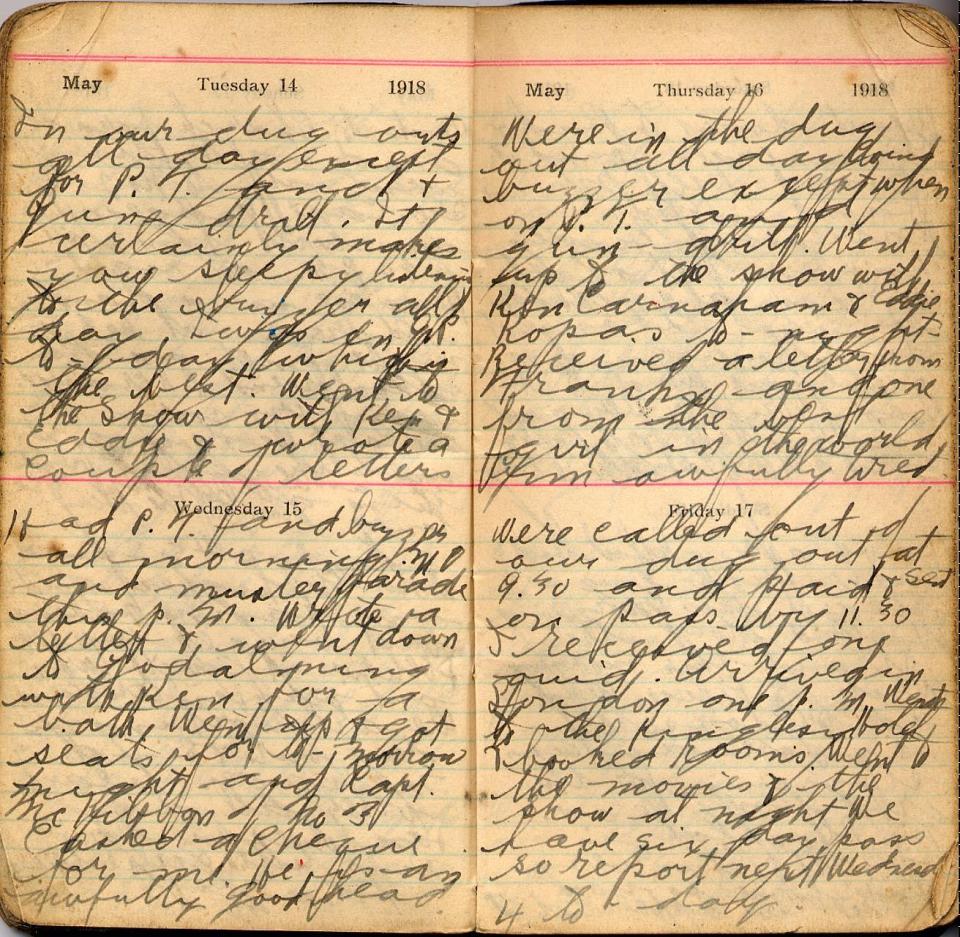 May Tuesday 14 1918
In our dug outs
all day except
for P. T. and +
gun drill. It
certainly makes
you sleepy listening
to the buzzer all
day I was on
to-day which is
the best. Went to
the show with Ken &
Eddie & wrote a
couple of letters
Wednesday 15
Had P. T. and buzzer
all morning. M O
and muster parade
this p. m. Wrote a
letter & went down
to Godalming
with Ken for a
bath. Went up & got
seats for to-morrow
night and Capt.
of No 3
cashed a cheque
for me. He is an
awfully good head
May Thursday 16 1918
Were in the dug
out all day doing
buzzer except when
on P. T. and
gun-drill. Went
up to the show with
Ken & Eddie
to-night.
Received a letter from
and one
from the best
girl in the world
I'm awfully tired
Friday 17
Were called out of
our dug out at
9.30 and paid & sent
on pass by 11.30
I received one
quid. Arrived in
London one p. m. Went
to the Kingsley hotel
& booked rooms. Went to
the movies & the
show at night We
have six day pass
so report next Wednesday
4 to-day.